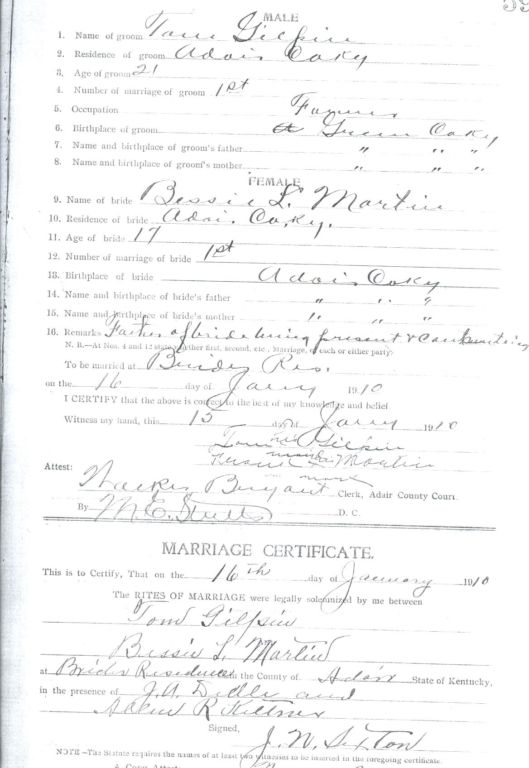 MALE
1. Name of groom Tom Gilpin
2. Residence of groom Adair Co Ky
3. Age of groom 21
4. Number of marriage of groom 1st
5. Occupation Farmer
6. Birthplace of groom Green Co Ky
7. Name and birthplace of groom's father " " "
8. Name and birthplace of groom's mother " " "
FEMALE
9. Name of bride Bessie L. Martin
10. Residence of bride Adair Co. Ky.
11. Age of bride 17
12. Number of marriage of bride 1st
13. Birthplace of bride Adair Co Ky
14. Name and birthplace of bride's father " " "
15. Name and birthplace of bride's mother " " "
16. Remarks Father of bride being present & Consenting
N. B.—At Nos. 4 and 12 state whether first, second, etc., Marriage, of each or either party.
To be married at Brides Res.
on the 16 day of Jany 1910
I CERTIFY that the above is correct to the best of my knowledge and belief
Witness my hand, this 15 day of Jany 1910
Tom Gilpin
his mark Martin
mark
Attest: Walker Bryant Clerk, Adair County Court.
By M.E. D.C.
MARRIAGE CERTIFICATE.
This is to Certify, That on the 16th day of January 1910
The RITES OF MARRIAGE were legally solemnized by me between
Tom Gilpin
Bessie L Martin
at Brides Residence in the County of Adair State of Kentucky,
in the presence of J.A. and
R Keltner
Signed,
J. W. Sexton
NOTE—The Statute requires the names of at least two witnesses to be inserted in the foregoing certificate.
A Copy Attest: